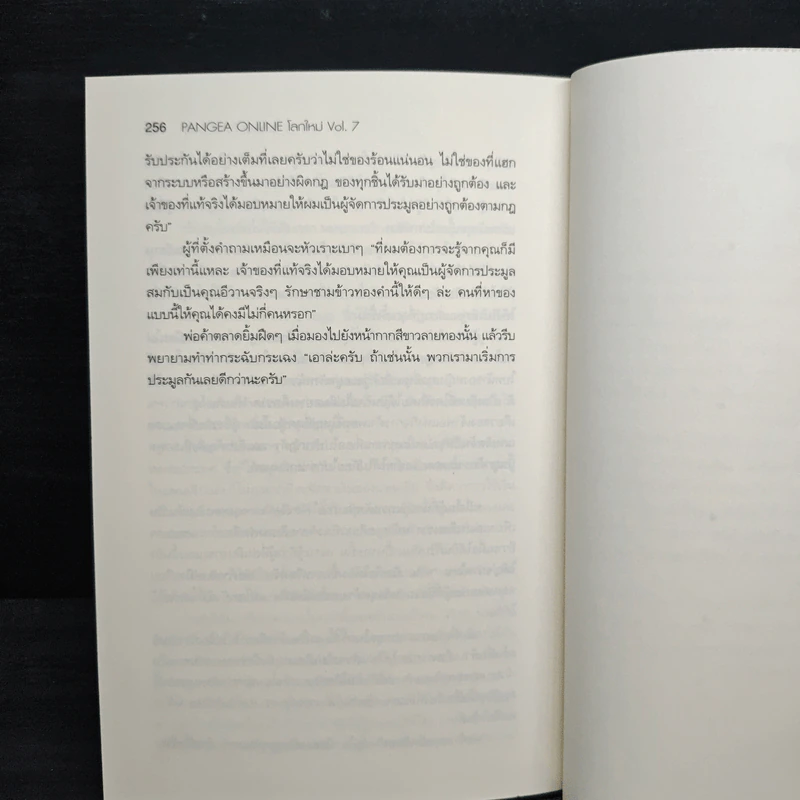 256 PANGEA ONLINE โลกใหม่ Vol. 7
รับประกันได้อย่างเต็มที่เลยครับว่าไม่ใช่ของร้อนแน่นอน ไม่ใช่ของที่แฮก
จากระบบหรือสร้างขึ้นมาอย่างผิดกฎ ของทุกชิ้นได้รับมาอย่างถูกต้อง และ
เจ้าของที่แท้จริงได้มอบหมายให้ผมเป็นผู้จัดการประมูลอย่างถูกต้องตามกฎ
ครับ”
ผู้ที่ตั้งคำถามเหมือนจะหัวเราะเบาๆ “ที่ผมต้องการจะรู้จากคุณก็มี
เพียงเท่านี้แหละ เจ้าของที่แท้จริงได้มอบหมายให้คุณเป็นผู้จัดการประมูล
สมกับเป็นคุณอีวานจริงๆ รักษาชามข้าวทองคำนี้ให้ดีๆ ล่ะ คนที่หาของ
แบบนี้ให้คุณได้คงมีไม่กี่คนหรอก”
พ่อค้าตลาดยิ้มฝืดๆ เมื่อมองไปยังหน้ากากสีขาวลายทองนั้น แล้วรีบ
พยายามทำท่ากระฉับกระเฉง “เอาล่ะครับ ถ้าเช่นนั้น พวกเรามาเริ่มการ
ประมูลกันเลยดีกว่านะครับ”